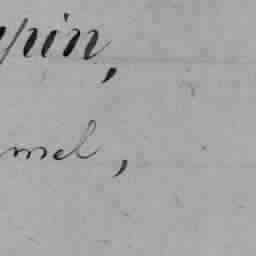 ppin,
mel,